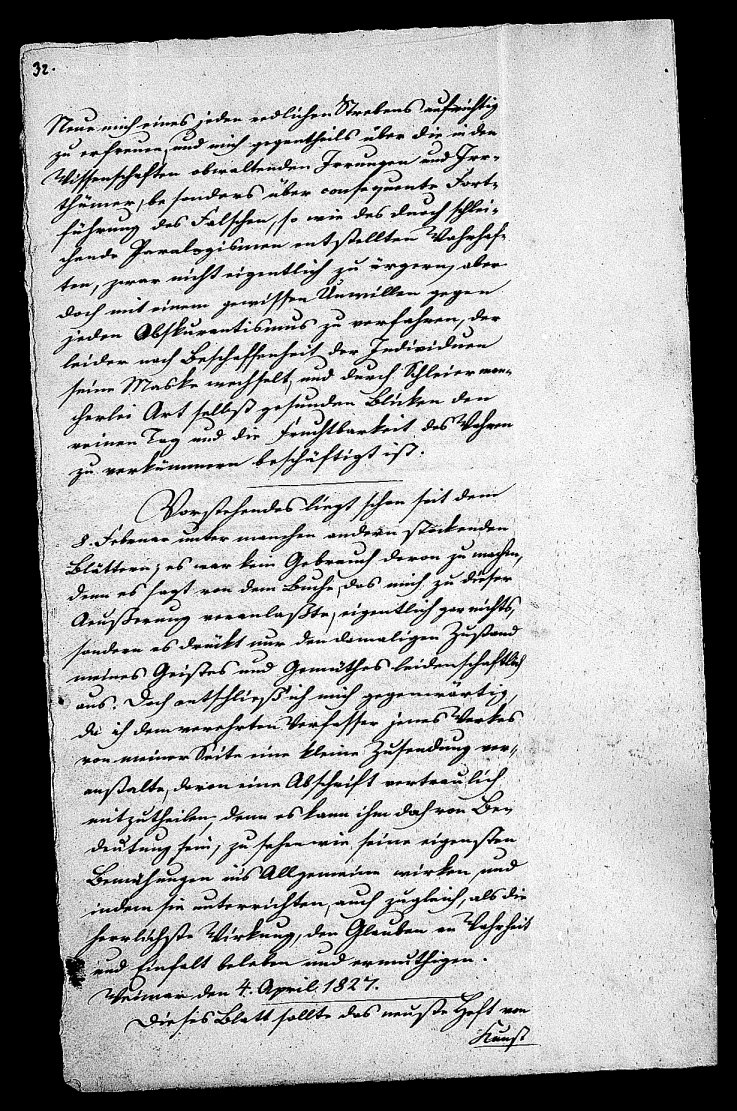 32.
Neue mich eines jeden redlichen Strebens aufrichtig
zu erfreuen, und mich gegentheils über die in den
Wissenschaften obwaltenden Irrungen und Irr-
thümer, besonders über consequente Fort-
führung des Falschen, so wie des durch schlei-
chende Paralogismen entstellten Wahrhaf-
ten, zwar nicht eigentlich zu ärgern, aber
doch mit einem gewissen Unwillen gegen
jeden Obskurantismus zu verfahren, der
leider nach Beschaffenheit der Individuen
seine Maske wechselt, und durch Schleier man-
cherlei Art selbst gesunden Blicken den
reinen Tag und die Fruchtbarkeit des Wahren
zu verkümmern beschäftigt ist.
Vorstehendes liegt schon seit dem
8. Februar unter manchen andern stockenden
Blättern; es war kein Gebrauch davon zu machen,
denn es sagt von dem Buche, das mich zu dieser
Aeußerung veranlaßte, eigentlich gar nichts,
sondern es drükt nur den damaligen Zustand
meines Geistes und Gemüthes leidenschaftlich
aus. Doch entschließ' ich mich gegenwärtig,
da ich dem verehrten Verfasser jenes Werkes
von meiner Seite eine kleine Zusendung ver-
anstalte, davon eine Abschrift vertraulich
mitzutheilen, denn es kann ihm doch von Be-
deutung sein, zu sehen wie seine eigensten
Bemühungen ins Allgemeine wirken, und
indem sie unterrichten, auch zugleich, als die
herrlichste Wirkung, den Glauben an Wahrheit
und Einfalt beleben und ermuthigen.
Weimar den 4. April 1827.
Dieses Blatt sollte das neuste Heft von
Kunst